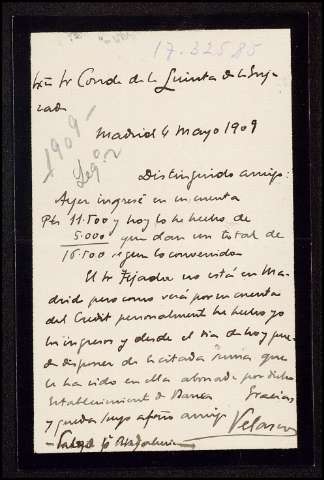 17.325,85
Exmo Sr Conde de la Quinta de la Enja-
rada
Madrid 4 Mayo 1909
1909
Leg. 2
Distinguido amigo:
Ayer ingresé en su cuenta
Pts 11.500 y hoy lo he hecho de
5.000 que dan un total de
16.500 segun lo convenido
El Sr Tejada no está en Ma-
drid pero como verá por su cuenta
del Credit personalmente he hecho yo
los ingresos y desde el dia de hoy pue-
de disponer de la citada suma que
le ha sido en ella abonada por dicho
Establecimiento de Banca Gracias
y queda suyo afmo amigo
Velasco